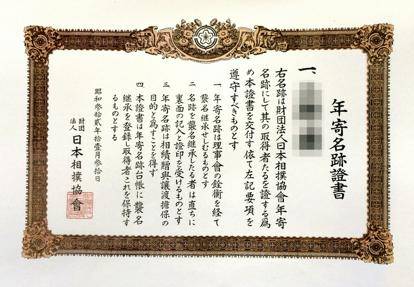 年寄名跡證書
一、
右名跡は財団法人日本相撲協會年寄
名跡にして其の取得者たるを證する為
め本證書を交付す依て左記要項を
遵守すべきものとす
一 年寄名跡は理事會の銓衡を経て
襲名継承せしむるものとす
二 名跡を襲名継承したる者は直ちに
裏面の記入と證印を受けるものとす
三 年寄名跡は相続贈與譲渡擔保の
目的と為すことを得す
四 本證書は年寄名跡台帳に襲名
継承を登録し取得者これを保持す
るものとする
昭和参拾弐年拾壹月参拾日
財団
法人 日本相撲協會